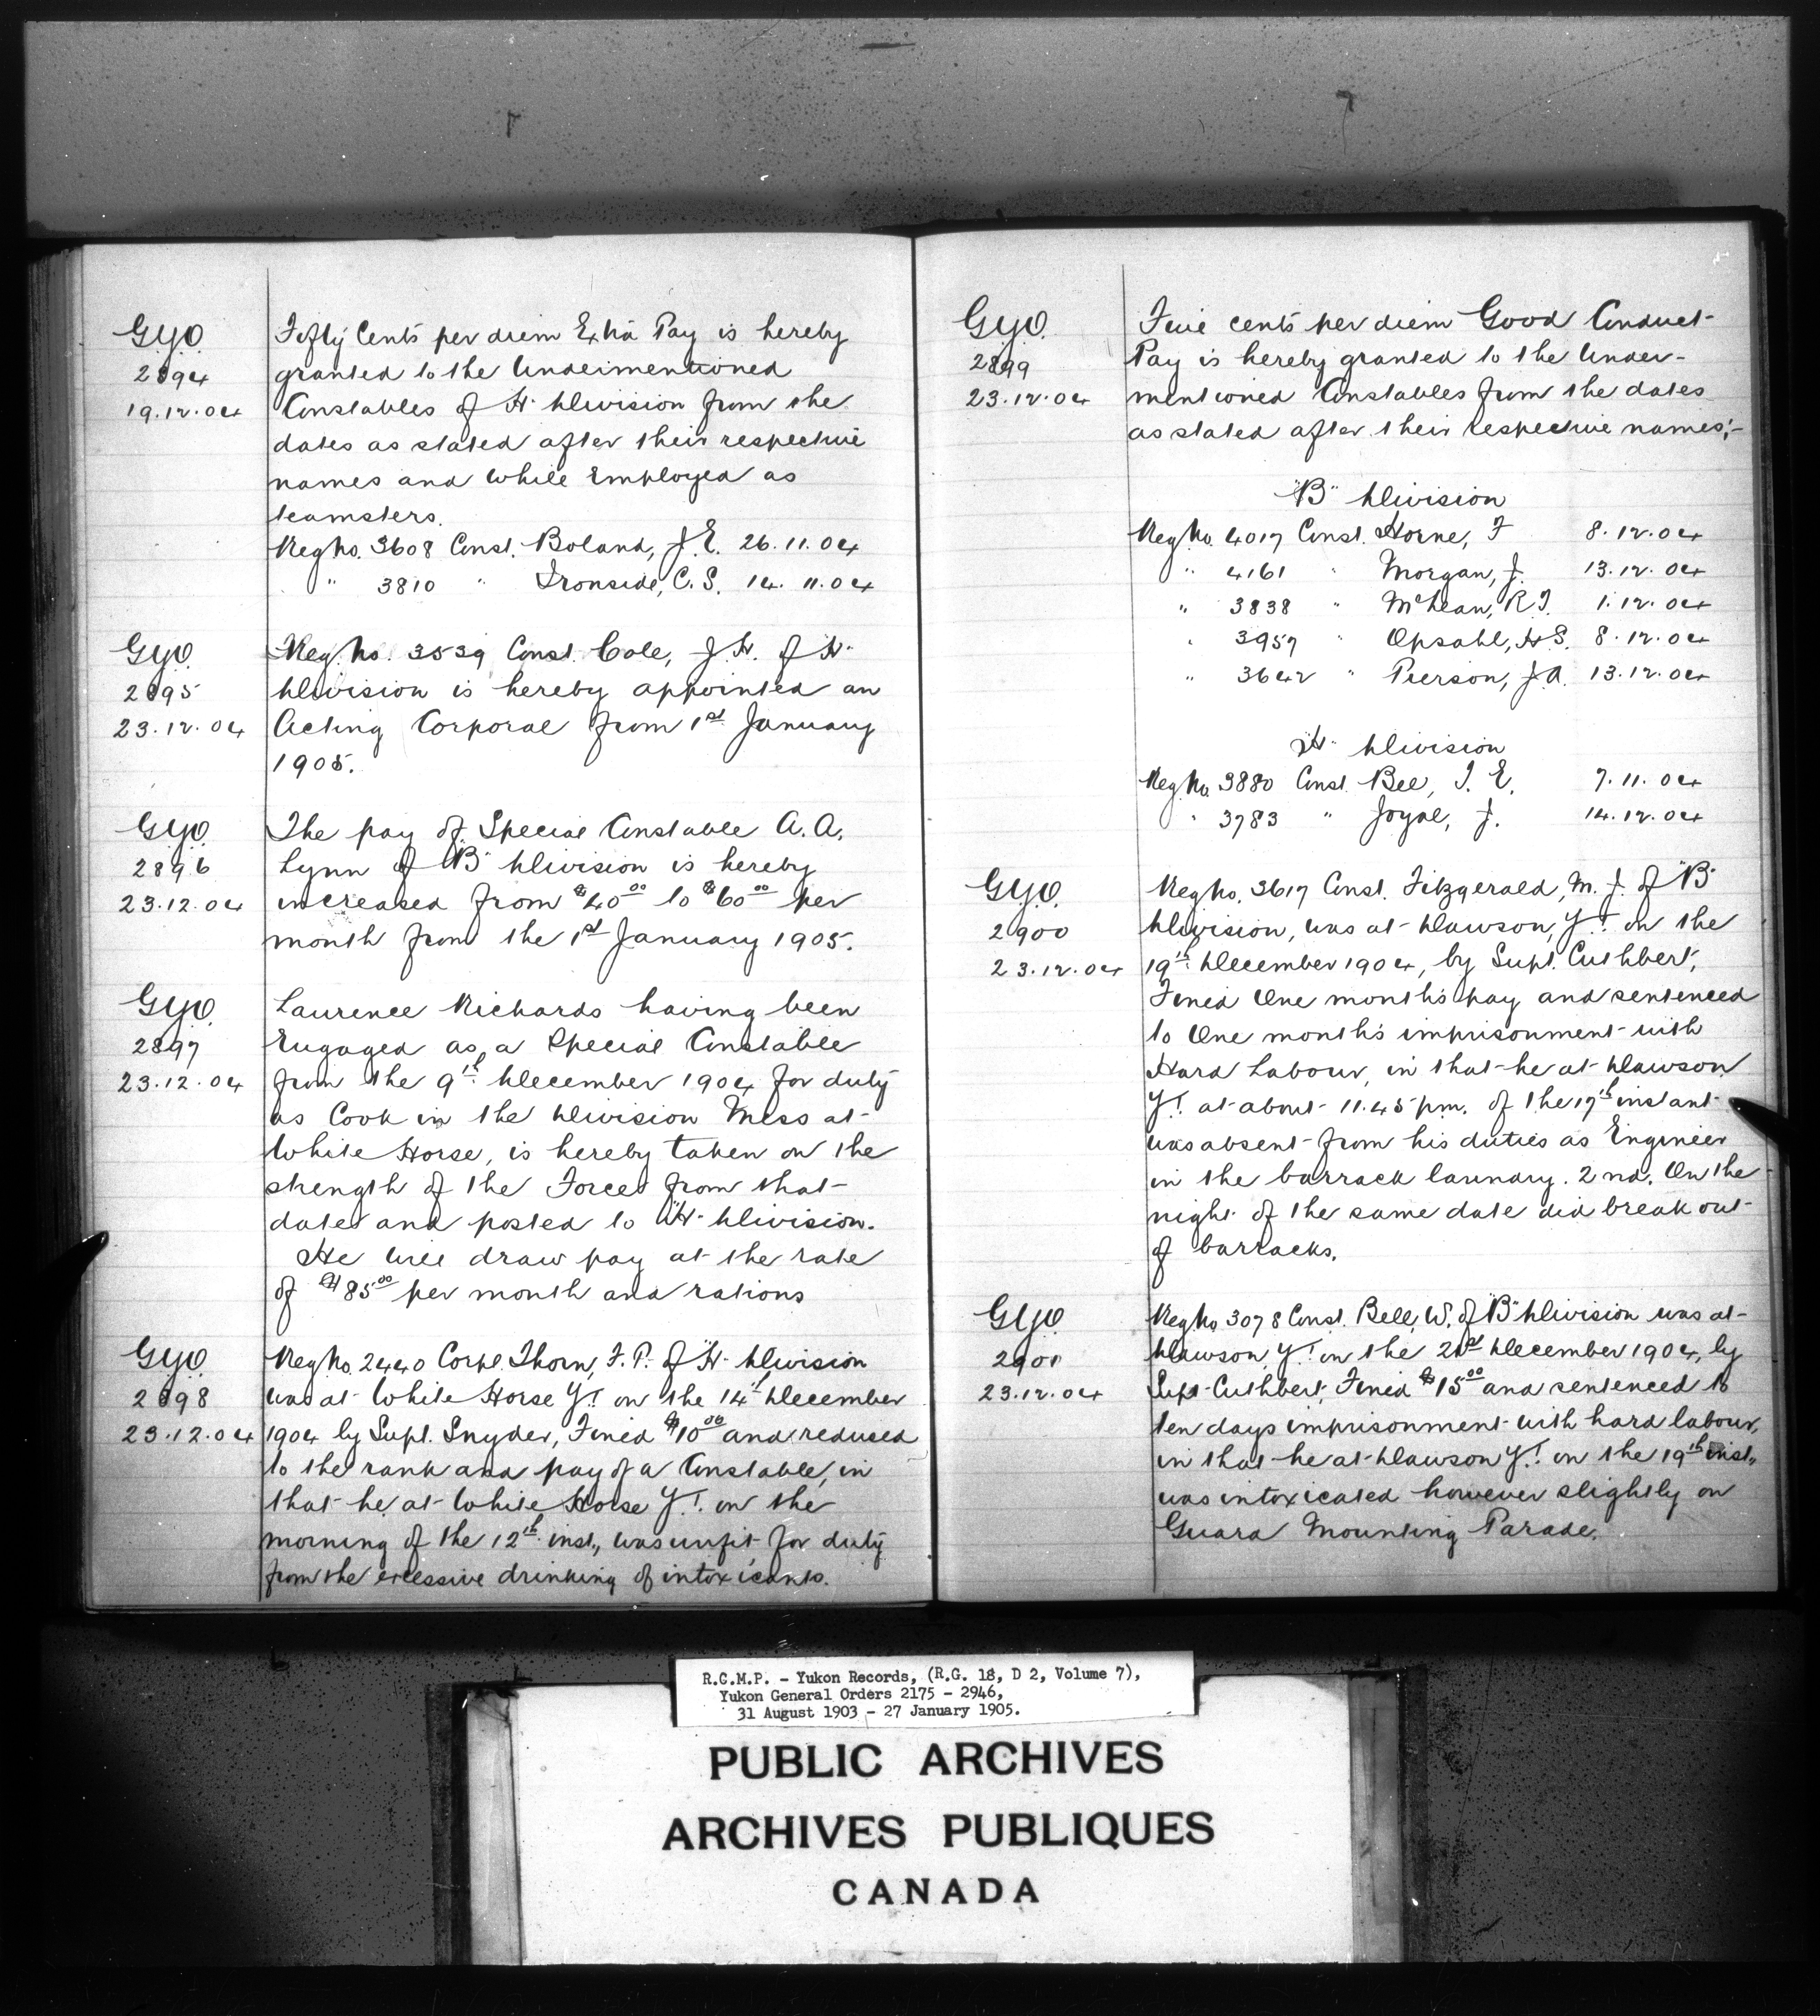 G.Y.O.
2894
19.12.04
Fifty Cents per diem Extra Pay is hereby
granted to the Undermentioned
Constables of "H" Division from the
dates as stated after their respective
names and while Employed as
teamsters.
Reg No. 3608 Const. Boland, J.E. 26.11.04
" 3810 " Ironside, C.S. 14.11.04
G.Y.O.
2895
23.12.04
Reg. No. 3539 Const. Cole, J.H. of "H"
Division is hereby appointed an
Acting Corporal from 1st January
1905.
G.Y.O.
2896
23.12.04
The pay of Special Constable A.A.
Lynn of "B" Division is hereby
increased from $40.00 to $60.00 per
month from the 1st January 1905.
G.Y.O.
2897
23.12.04
Laurence Richards having been
Engaged as a Special Constable
from the 9th December 1904 for duty
as Cook in the Division Mess at
White Horse, is hereby taken on the
strength of the Force from that
date and posted to "H" Division.
He will draw pay at the rate
of $85.00 per month and rations
G.Y.O.
2898
23.12.04
Reg No. 2440 Corpl. Thorn, F.P. of "H" Division
was at White Horse Y.T. on the 14th December
1904 by Supt. Snyder, Fined $10.00 and reduced
to the rank and pay of a Constable, in
that he at White Horse Y.T. on the
morning of the 12th inst., was unfit for duty
from the excessive drinking of intoxicants.
G.Y.O.
2899
23.12.04
Five cents per diem Good Conduct
Pay is hereby granted to the Under-
mentioned Constables from the dates
as stated after their respective names;-
"B" Division
Reg No. 4017 Const. Horne, F 8.12.04
" 4161 " Morgan, J. 13.12.04
" 3838 " McLean, R.J. 1.12.04
" 3957 " Opsahl, H.S. 8.12.04
" 3642 " Pierson, J.A. 13.12.04
"H" Division
Reg No. 3880 Const. Bee, T.E. 7.11.04
" 3783 " Joyal, J. 14.12.04
G.Y.O.
2900
23.12.04
Reg No. 3617 Const. Fitzgerald, M.J. of "B"
Division, was at Dawson, Y.T. on the
19th December 1904, by Supt. Cuthbert,
Fined One months pay and sentenced
to One month's imprisonment with
Hard Labour, in that he at Dawson
Y.T. at about 11.45 p.m. of the 17th instant
was absent from his duties as Engineer
in the barrack laundry. 2nd. On the
night of the same date did break out
of barracks.
G.Y.O.
2901
23.12.04
Reg No. 3078 Const. Bell, W. of "B" Division was at
Dawson Y.T. on the 21st December 1904, by
Supt. Cuthbert, Fined $15.00 and sentenced to
ten days imprisonment with hard labour,
in that he at Dawson Y.T. on the 19th inst.,
was intoxicated however slightly on
Guard Mounting Parade.
R.C.M.P. - Yukon Records, (R.G. 18, D 2, Volume 7),
Yukon General Orders 2175 - 2946,
31 August 1903 - 27 January 1905.
PUBLIC ARCHIVES
ARCHIVES PUBLIQUES
CANADA